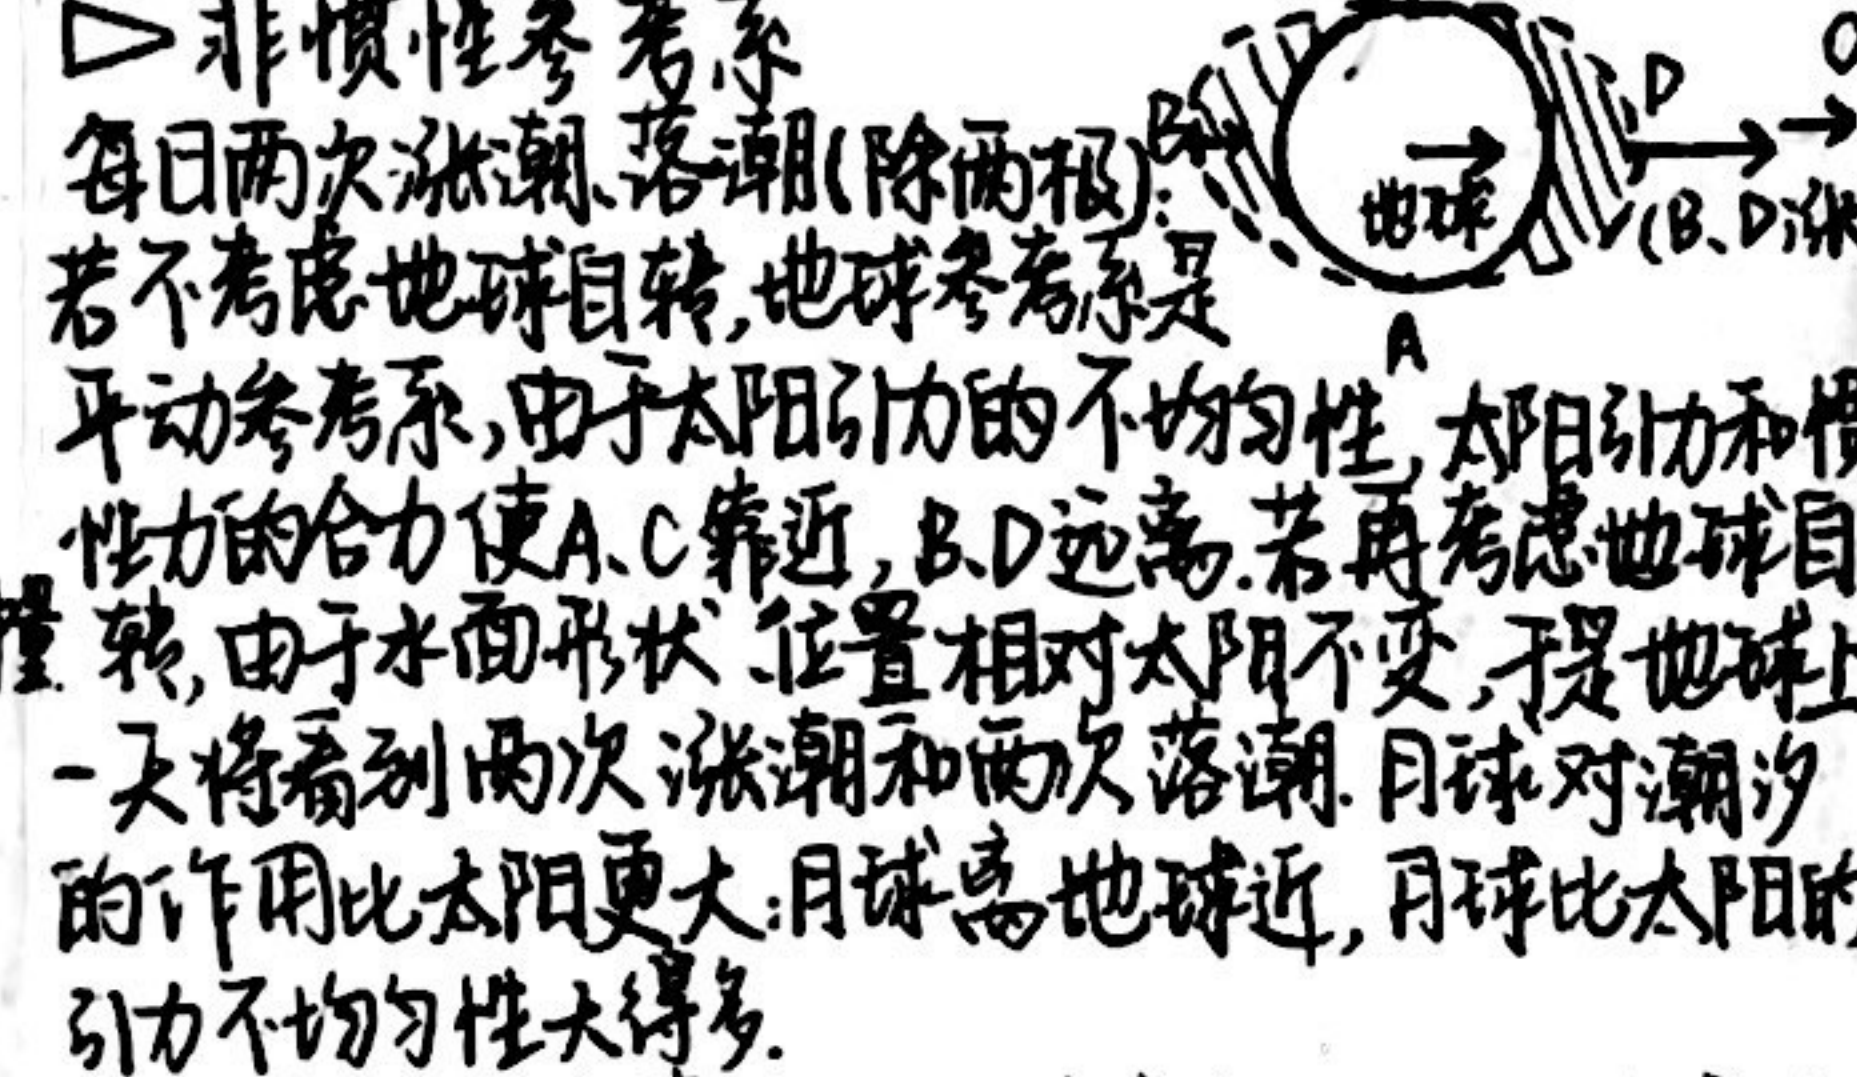 ▷ 非惯性参考系
每日两次涨潮、落潮(除两极):
若不考虑地球自转,地球参考系是
平动参考系,由于太阳引力的不均匀性,太阳引力和惯
性力的合力使A、C靠近,B、D远离.若再考虑地球自
转,由于水面形状、位置相对太阳不变,于是地球上
一天将看到两次涨潮和两次落潮.月球对潮汐
的作用比太阳更大:月球离地球近,月球比太阳的
引力不均匀性大得多.
B
D
地球
(B、D涨
A